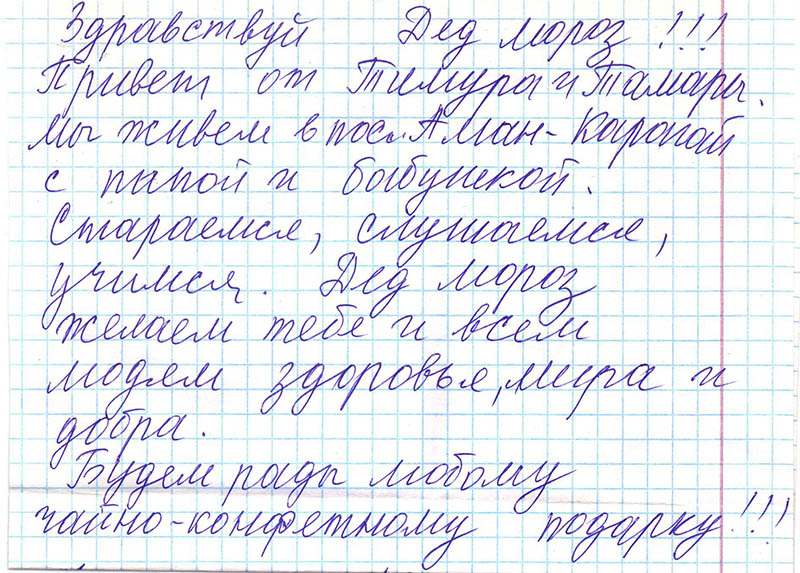 Здравствуй Дед мороз!!!
Привет от Тимура и Тамары.
мы живем в пос. Аман-Карагай
с папой и бабушкой.
Стараемся, слушаемся,
учимся. Дед мороз
желаем тебе и всем
людям здоровья, мира и
добра.
Будем рады любому
чайно-конфетному подарку!!!